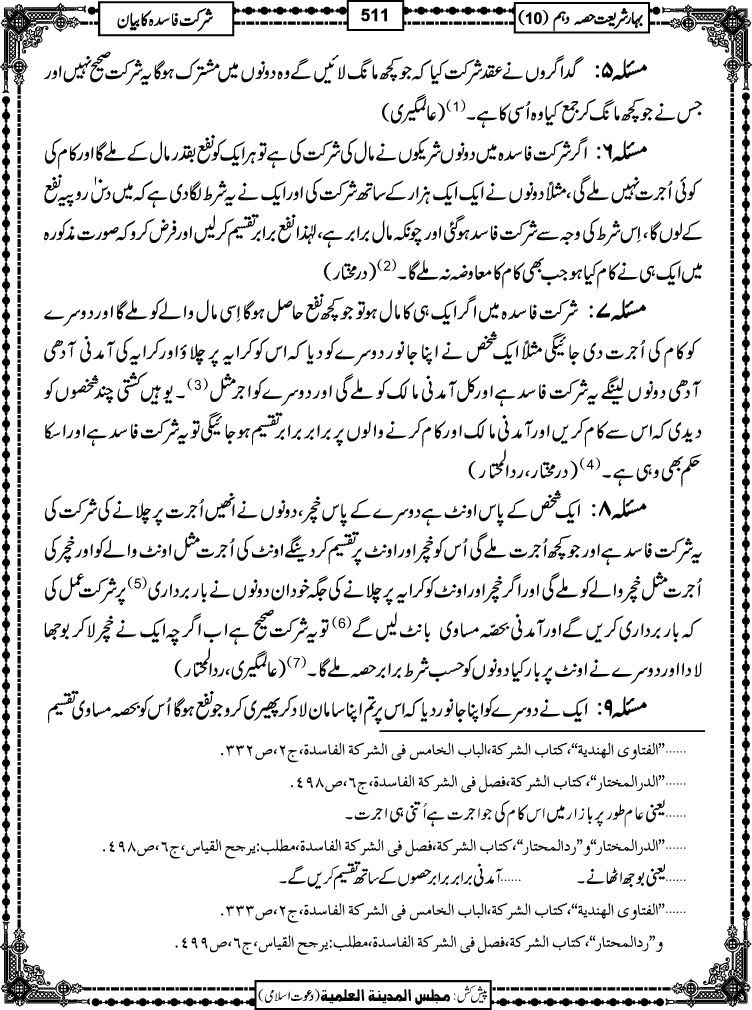 بہار شریعت حصہ دہم (10)
511
شرکت فاسدہ کا بیان
مسئلہ ۵: گداگروں نے عقد شرکت کیا کہ جو کچھ مانگ لائیں گے وہ دونوں میں مشترک ہوگا یہ شرکت صحیح نہیں اور
جس نے جو کچھ مانگ کر جمع کیا وہ اُسی کا ہے۔(1) (عالمگیری)
مسئلہ ۶: اگر شرکت فاسدہ میں دونوں شریکوں نے مال کی شرکت کی ہے تو ہر ایک کو نفع بقدر مال کے ملے گا اور کام کی
کوئی اُجرت نہیں ملے گی، مثلاً دونوں نے ایک ایک ہزار کے ساتھ شرکت کی اور ایک نے یہ شرط لگا دی ہے کہ میں دسؔ روپیہ نفع
کے لوں گا، اِس شرط کی وجہ سے شرکت فاسد ہوگئی اور چونکہ مال برابر ہے، لہٰذا نفع برابر تقسیم کرلیں اور فرض کرو کہ صورت مذکورہ
میں ایک ہی نے کام کیا ہو جب بھی کام کا معاوضہ نہ ملے گا۔(2) (درمختار)
مسئلہ ۷: شرکت فاسدہ میں اگر ایک ہی کا مال ہو تو جو کچھ نفع حاصل ہوگا اِسی مال والے کو ملے گا اور دوسرے
کو کام کی اُجرت دی جائیگی مثلاً ایک شخص نے اپنا جانور دوسرے کو دیا کہ اس کو کرایہ پر چلاؤ اور کرایہ کی آمدنی آدھی
آدھی دونوں لینگے یہ شرکت فاسد ہے اور کل آمدنی مالک کو ملے گی اور دوسرے کو اجر مثل(3)۔ یوہیں کشتی چند شخصوں کو
دیدی کہ اس سے کام کریں اور آمدنی مالک اور کام کرنے والوں پر برابر برابر تقسیم ہو جائیگی تو یہ شرکت فاسد ہے اور اسکا
حکم بھی وہی ہے۔(4) (درمختار، ردالمحتار)
مسئلہ ۸: ایک شخص کے پاس اونٹ ہے دوسرے کے پاس خچر، دونوں نے انھیں اُجرت پر چلانے کی شرکت کی
یہ شرکت فاسد ہے اور جو کچھ اُجرت ملے گی اُس کو خچر اور اونٹ پر تقسیم کردینگے اونٹ کی اُجرت مثل اونٹ والے کو اور خچر کی
اُجرت مثل خچر والے کو ملے گی اور اگر خچر اور اونٹ کو کرایہ پر چلانے کی جگہ خود ان دونوں نے بار برداری(5) پر شرکت عمل کی
کہ بار برداری کریں گے اور آمدنی بحصّہ مساوی بانٹ لیں گے(6) تو یہ شرکت صحیح ہے اب اگرچہ ایک نے خچر لا کر بوجھا
لادا اور دوسرے نے اونٹ پر بار کیا دونوں کو حسب شرط برابر حصہ ملے گا۔(7) (عالمگیری، ردالمحتار)
مسئلہ ۹: ایک نے دوسرے کو اپنا جانور دیا کہ اس پر تم اپنا سامان لاد کر پھیری کرو جو نفع ہوگا اُس کو بحصہ مساوی تقسیم
......"الفتاوی الھندیة"، کتاب الشرکة، الباب الخامس فی الشرکة الفاسدة، ج۲، ص۳۳۲.
......"الدرالمختار"، کتاب الشرکة، فصل فی الشرکة الفاسدة، ج۶، ص۴۹۸.
......یعنی عام طور پر بازار میں اس کام کی جو اجرت ہے اُتنی ہی اجرت۔
......"الدرالمختار" و"ردالمحتار"، کتاب الشرکة، فصل فی الشرکة الفاسدة، مطلب: یرجح القیاس، ج۶، ص۴۹۸.
......یعنی بوجھ اٹھانے۔ ......آمدنی برابر برابر حصوں کے ساتھ تقسیم کریں گے۔
......"الفتاوی الھندیة"، کتاب الشرکة، الباب الخامس فی الشرکة الفاسدة، ج۲، ص۳۳۳.
و"ردالمحتار"، کتاب الشرکة، فصل فی الشرکة الفاسدة، مطلب: یرجح القیاس، ج۶، ص۴۹۹.
پیش کش: مجلس المدینة العلمیة (دعوت اسلامی)